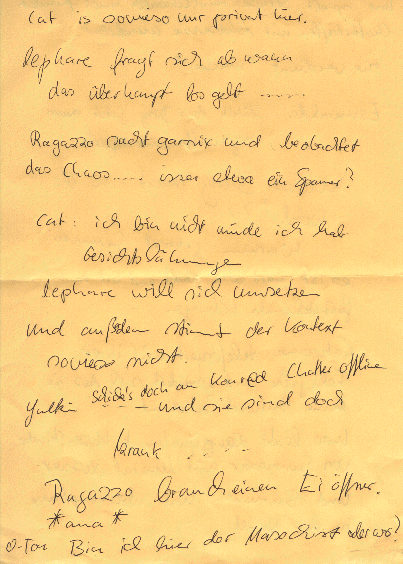 Cat is sowieso nur privat hier.
lephare fragt sich ab wann
das überhaupt los geht .....
Ragazzo sacht garnix und beobachtet
das Chaos..... isser etwa ein Spanner?
Cat: ich bin nicht müde ich hab
Gesichtslähmung
lephare will sich umsetzen
und außerdem stimmt der Kontext
sowieso nicht.
Yulki schick's doch an Konr@d Chatter offline
und sie sind doch
krank .....
Ragazzo braucht einen Eiöffner.
*ana*
O-Ton Bin ich hier der Masochist oder wo?